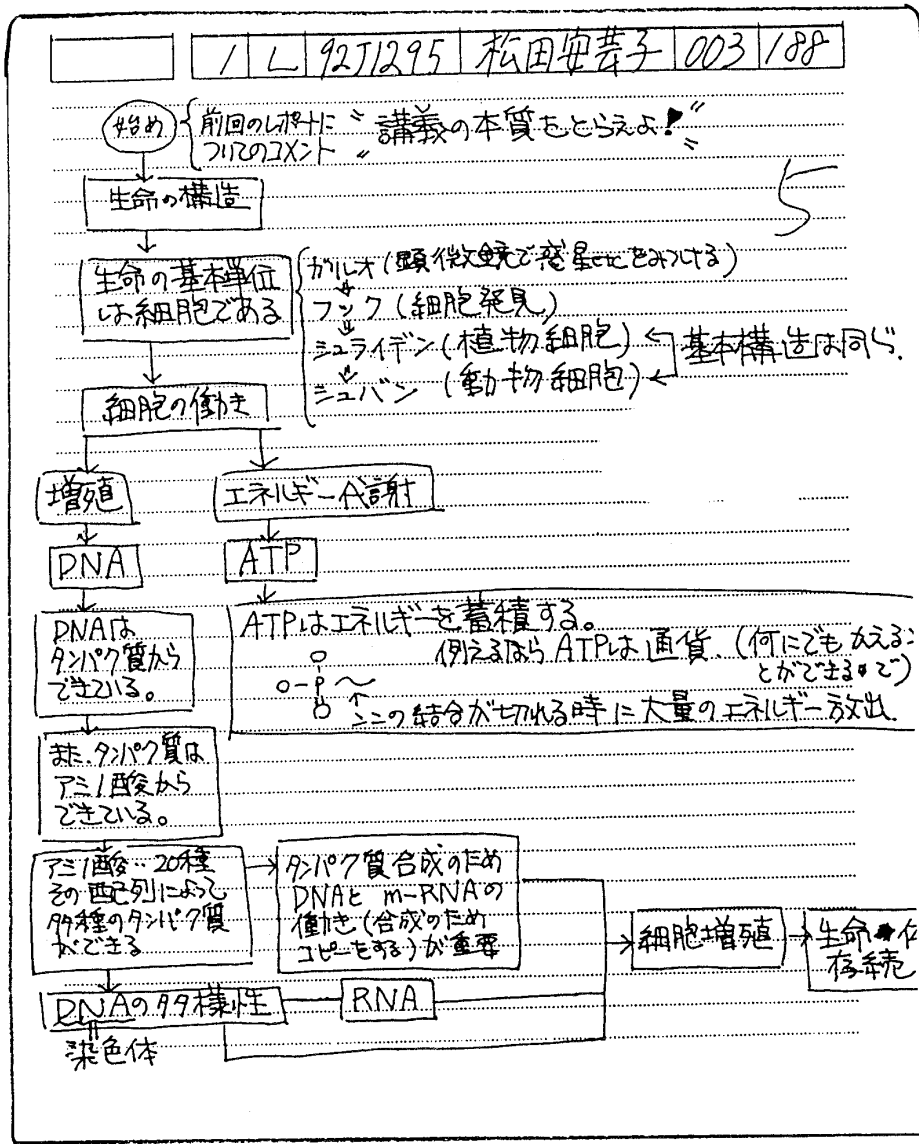 1 L 92J1295 松田安芸子 003 188
始め
前回のレポートに
ついてのコメント
"講義の本質をとらえよ!"
5
生命の構造
生命の基本単位
は細胞である
ガリレオ(顕微鏡で惑星etcをみつける)
フック(細胞発見)
シュライデン(植物細胞)
シュバン(動物細胞)
基本構造は同じ.
細胞の働き
増殖
エネルギー代謝
DNA
ATP
DNAは
タンパク質から
できている。
ATPはエネルギーを蓄積する。
例えるなら ATPは通貨.(何にでもかえるこ
とができるので)
O
O-P~
O
ここの結合が切れる時に大量のエネルギー放出
また、タンパク質は
アミノ酸から
できている。
アミノ酸‥20種
その配列によって
多種のタンパク質
ができる
タンパク質合成のため
DNAと m-RNAの
働き(合成のため
コピーをする)が重要
細胞増殖
生命
存続
DNAの多様性
RNA
染色体